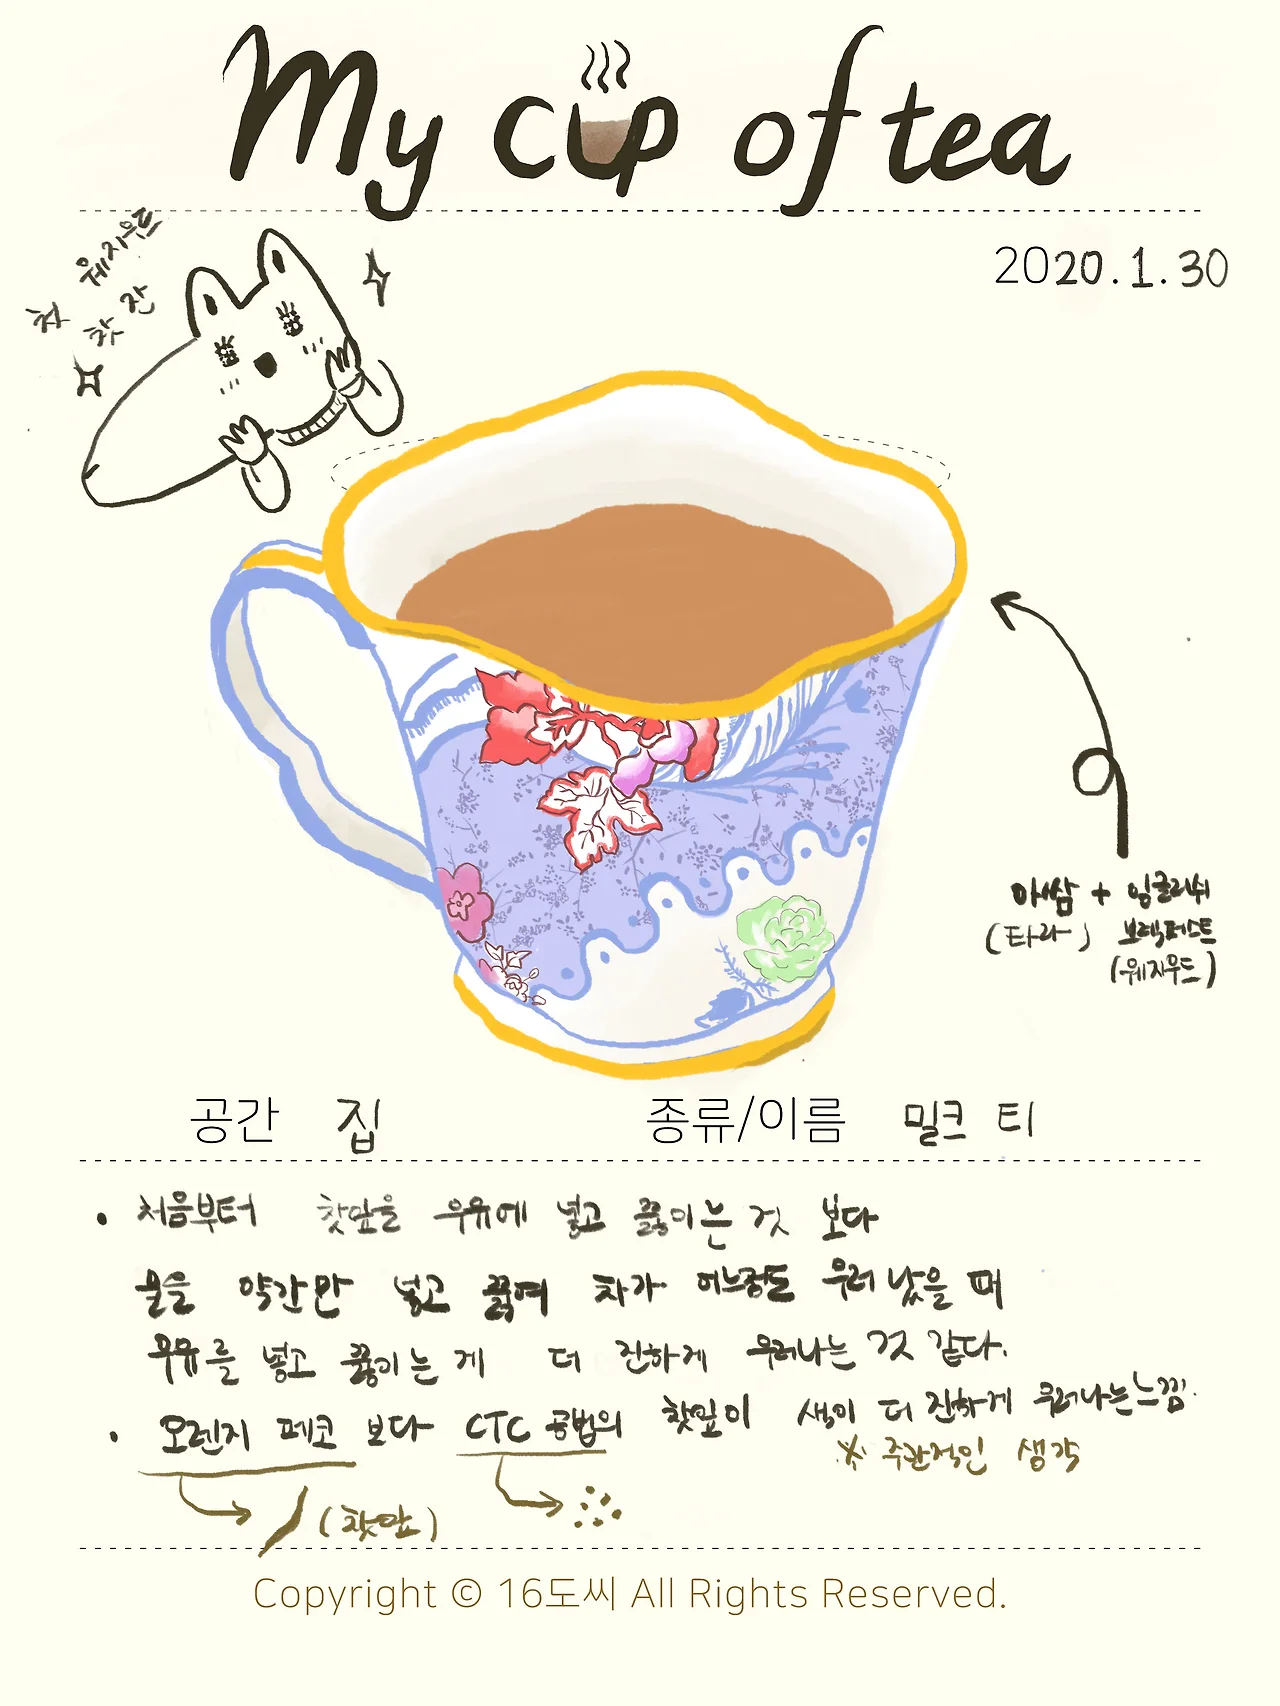 My cup of tea
2020.1.30
첫 웨지우드
찻잔
아쌈 + 잉글리쉬
(타라) 브렉퍼스트
(웨지우드)
공간 집 종류/이름 밀크 티
• 처음부터 찻잎을 우유에 넣고 끓이는 것 보다
물을 약간만 넣고 끓여 차가 어느정도 우러 났을 때
우유를 넣고 끓이는 게 더 진하게 우러나는 것 같다.
• 오렌지 페코 보다 CTC 공법의 찻잎이 색이 더 진하게 우러나는느낌.
※ 주관적인 생각
(찻잎)
Copyright © 16도씨 All Rights Reserved.